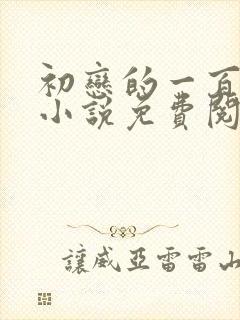 初戀的一百
小說免費閱
讓威亞雷雷山